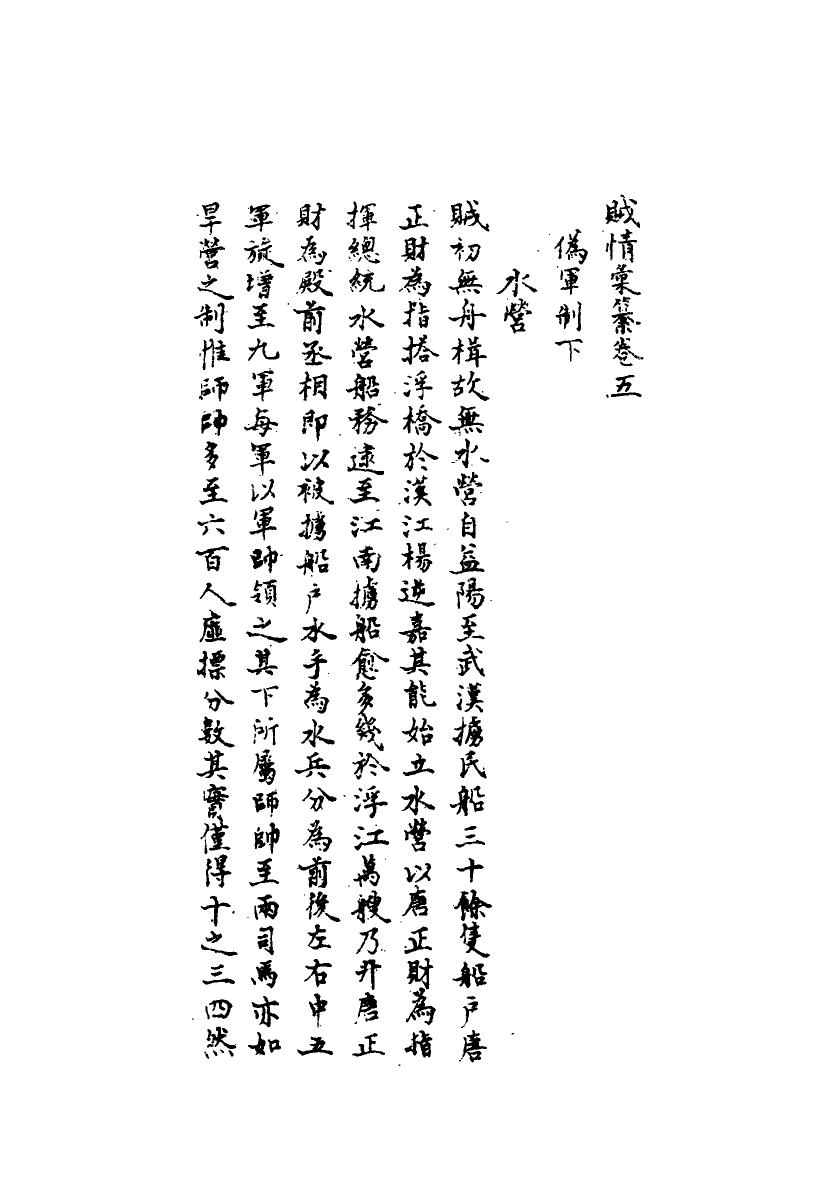 賊情彙纂卷五
偽軍制下
水營
賊初無舟楫故無水營自益陽至武漢擄民船三十餘隻船戶唐
正財為指搭浮橋於漢江楊逆嘉其能始立水營以唐正財為指
揮總統水營船務逮至江南擄船愈多幾於浮江萬艘乃升唐正
財為殿前丞相即以被擄船戶水手為水兵分為前後左右中五
軍旋增至九軍每軍以軍帥領之其下所屬師帥至兩司馬亦如
旱營之制惟師帥多至六百人虛摽分數其實僅得十之三四然